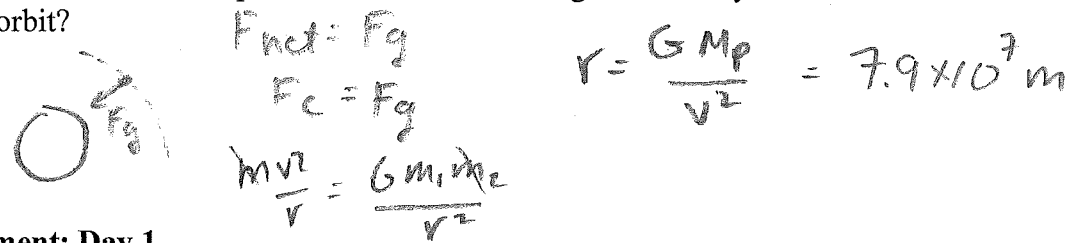 orbit?
Fnet = Fg
Fc = Fg
Fg
mv²/r = G m₁ m₂/r²
r = G Mp/v² = 7.9 x10⁷ m
ment: Day 1